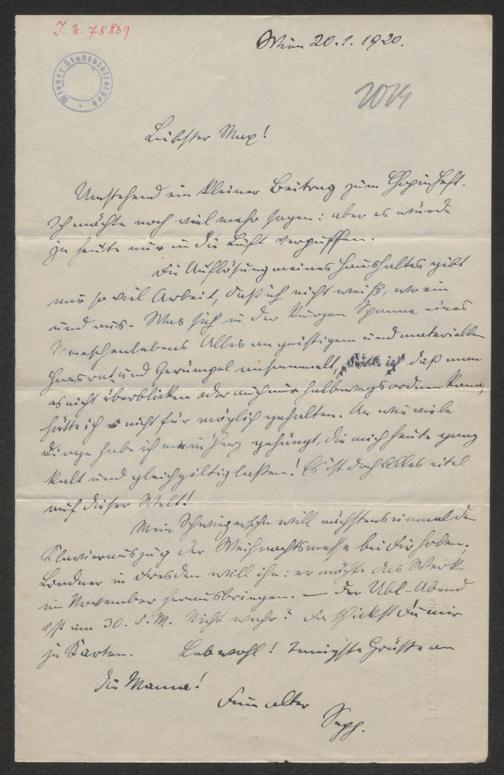 J. N. 78889
Wiener Stadtbibliothek
Wien 20.1.1920.
Liebster Max!
Umstehend ein kleiner Beitrag zum Chopinheft.
Ich möchte noch viel mehr sagen: aber es würde
ja heute nur in die Luft verpuffen.
Die Auflösung meines Haushaltes gibt
mir so viel Arbeit, daß ich nicht weiß, wo ein
und aus. Was sich in der kurzen Spanne eines
Menschenlebens Alles an geistigem und materiellen
Hausrat und Gerümpel ansammelt, daß man
es nicht überblicken oder auch nur halbwegs ordnen kann,
hätte ich nicht für möglich gehalten. An wie viele
Dinge habe ich mein Herz gehängt, die mich heute ganz
kalt und gleichgiltig laßen! Es ist doch Alles eitel
auf dieser Welt!
Mein Schwiegersohn will nächstens einmal den
Klavierauszug der Weihnachtsmesse bei Dir holen.
in Dresden will ihn: er möchte das Werk
im November herausbringen. — Der Abend
ist am 30. d. M. Nicht wahr? Da schickst Du mir
ja Karten. Lebwohl! Innigste Grüsse an
die Mama!
Dein alter
Sepp.